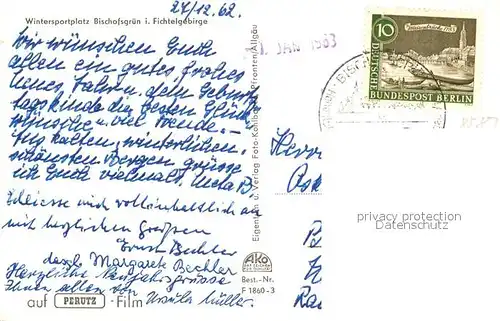 24/12.62
Wintersportplatz Bischofsgrün i. Fichtelgebirge
Wir wünschen Euch
allen ein gutes, frohes
neues Jahr u. dem Geburts
tagskinde die besten Glück
wünsche u. viel Freude. –
kalten, winterlichen,
schönsten Bergen grüsse
ich Euch vielmals,
schliesse mich vollinhaltlich an
mit herzlichen Grüßen
Ernst Bechler
Margarete Bechler
Herzliche Neujahrsgrüsse
Ihnen allen von Ursula Müller.
auf PERUTZ - Film
Eigentum u. Verlag Foto-Kohlbauer Pfronten/Allgäu
AKO
Best.-Nr.
F 1860-3
JAN 1963
10
DEUTSCHE
BUNDESPOST BERLIN
Herrn
privacy protection
Datenschutz